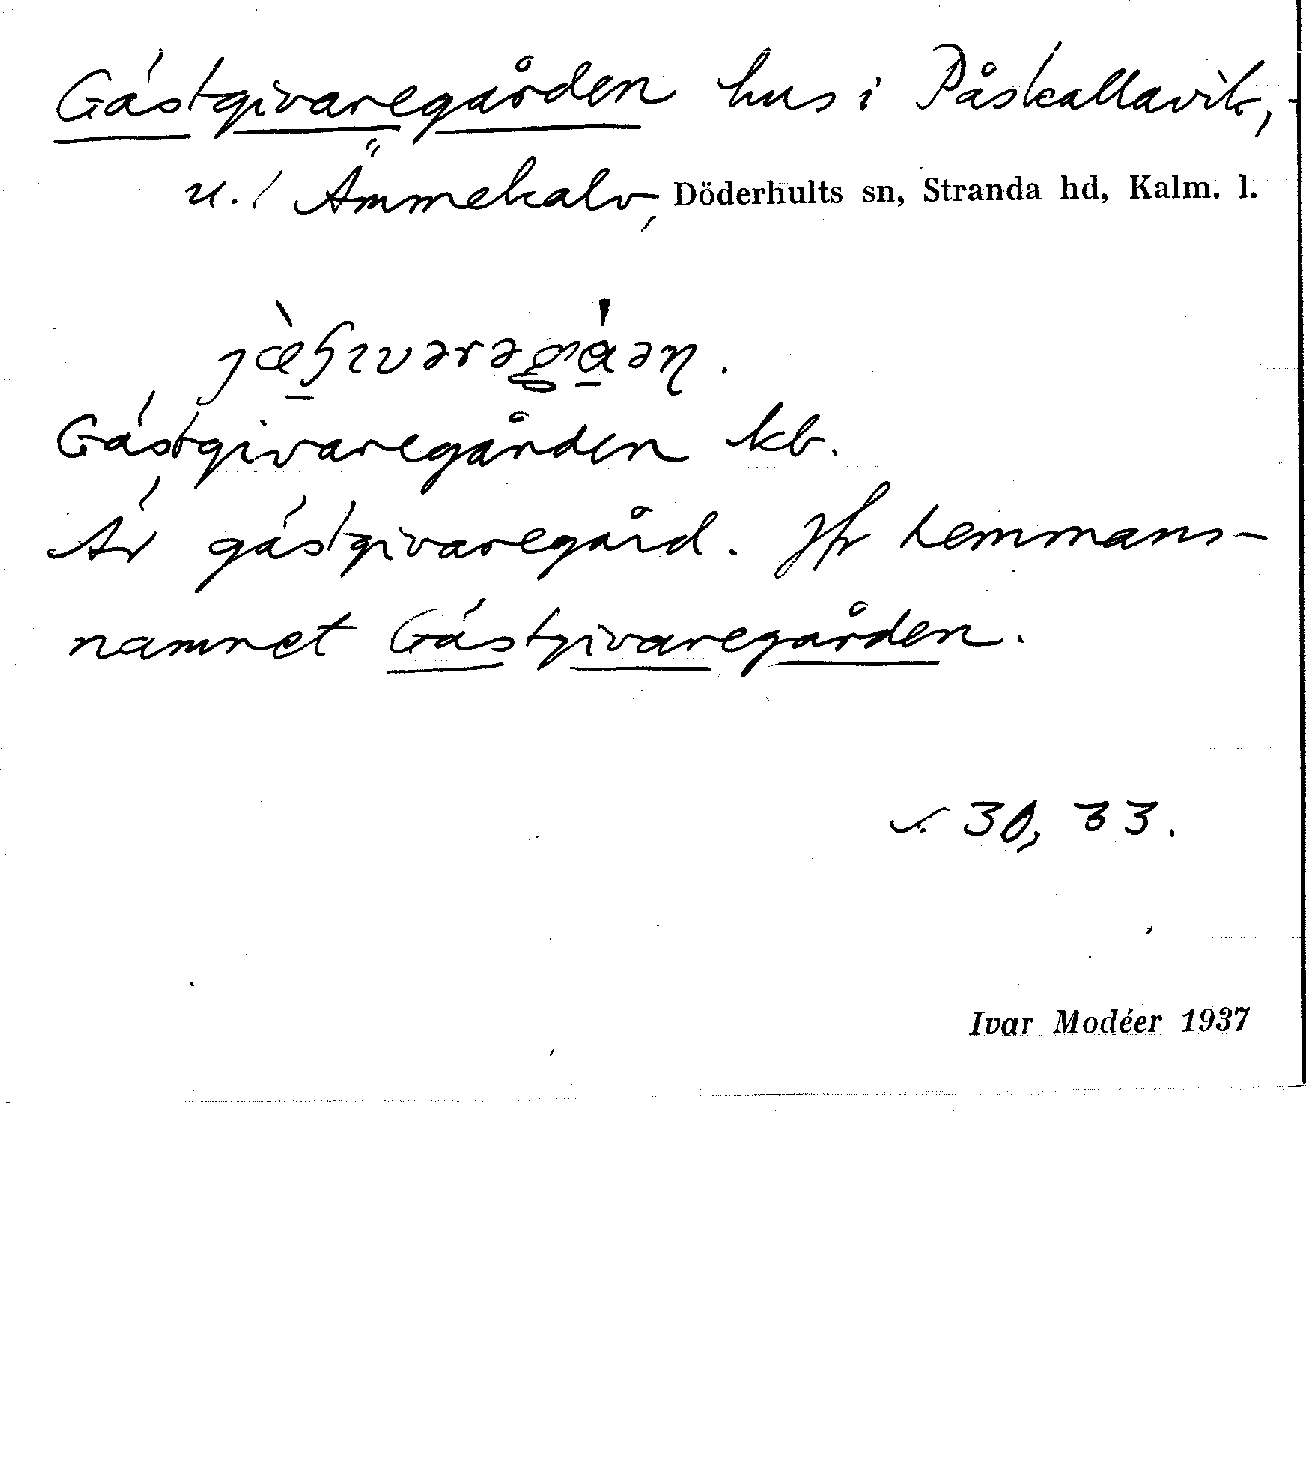 Gästgivaregården hus i Påskallavik,
u. Ämmekalv, Döderhults sn, Stranda hd, Kalm. l.
Gästgivaregården kb.
Är gästgivaregård. Jfr hemmans-
namnet Gästgivaregården.
30, 33.
Ivar Modéer 1937